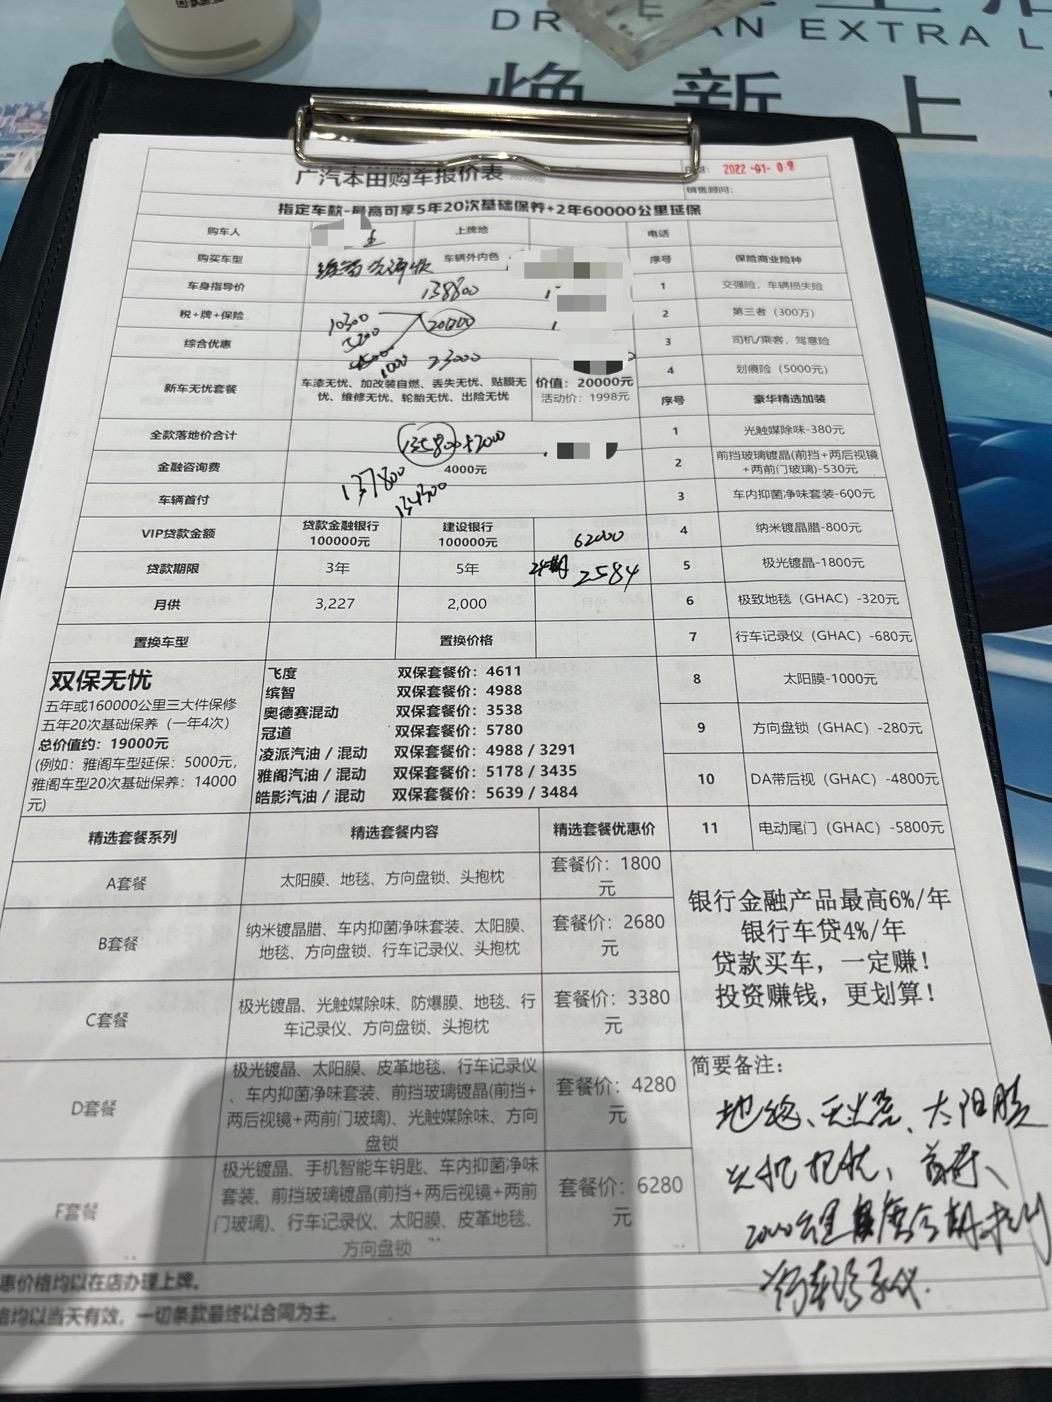 EXTRA L
焕新上
广汽本田购车报价表
2022-01-09
销售顾问：
指定车款-最高可享5年20次基础保养+2年60000公里延保
购车人 上牌地 电话
购买车型 车辆外内色 序号 保险商业险种
车身指导价 138800 1 交强险，车辆损失险
税+牌+保险 10300 20000 2 第三者（300万）
综合优惠 1000 23000 3 司机/乘客，驾意险
4 划痕险（5000元）
新车无忧套餐 车漆无忧、加改装自燃、丢失无忧、贴膜无忧、维修无忧、轮胎无忧、出险无忧 价值：20000元 活动价：1998元
序号 豪华精选加装
全款落地价合计 135800+2000 1 光触媒除味-380元
金融咨询费 4000元 2 前挡玻璃镀晶(前挡+两后视镜+两前门玻璃)-530元
车辆首付 137800 134300 3 车内抑菌净味套装-600元
VIP贷款金额 贷款金融银行 100000元 建设银行 100000元 62000 4 纳米镀晶腊-800元
贷款期限 3年 5年 24期 2584 5 极光镀晶-1800元
月供 3,227 2,000 6 极致地毯（GHAC）-320元
置换车型 置换价格 7 行车记录仪（GHAC）-680元
双保无忧
五年或160000公里三大件保修
五年20次基础保养（一年4次）
总价值约：19000元
(例如：雅阁车型延保：5000元，
雅阁车型20次基础保养：14000
元)
飞度 双保套餐价：4611
缤智 双保套餐价：4988
奥德赛混动 双保套餐价：3538
冠道 双保套餐价：5780
凌派汽油 / 混动 双保套餐价：4988 / 3291
雅阁汽油 / 混动 双保套餐价：5178 / 3435
皓影汽油 / 混动 双保套餐价：5639 / 3484
8 太阳膜-1000元
9 方向盘锁（GHAC）-280元
10 DA带后视（GHAC）-4800元
11 电动尾门（GHAC）-5800元
精选套餐系列 精选套餐内容 精选套餐优惠价
A套餐 太阳膜、地毯、方向盘锁、头抱枕 套餐价：1800元
B套餐 纳米镀晶腊、车内抑菌净味套装、太阳膜、地毯、方向盘锁、行车记录仪、头抱枕 套餐价：2680元
C套餐 极光镀晶、光触媒除味、防爆膜、地毯、行车记录仪、方向盘锁、头抱枕 套餐价：3380元
D套餐 极光镀晶、太阳膜、皮革地毯、行车记录仪、车内抑菌净味套装、前挡玻璃镀晶(前挡+两后视镜+两前门玻璃)、光触媒除味、方向盘锁 套餐价：4280元
F套餐 极光镀晶、手机智能车钥匙、车内抑菌净味套装、前挡玻璃镀晶(前挡+两后视镜+两前门玻璃)、行车记录仪、太阳膜、皮革地毯、方向盘锁 套餐价：6280元
银行金融产品最高6%/年
银行车贷4%/年
贷款买车，一定赚！
投资赚钱，更划算！
简要备注：
太阳膜
2000公里
行车记录仪.
惠价格均以在店办理上牌。
格均以当天有效，一切条款最终以合同为主。